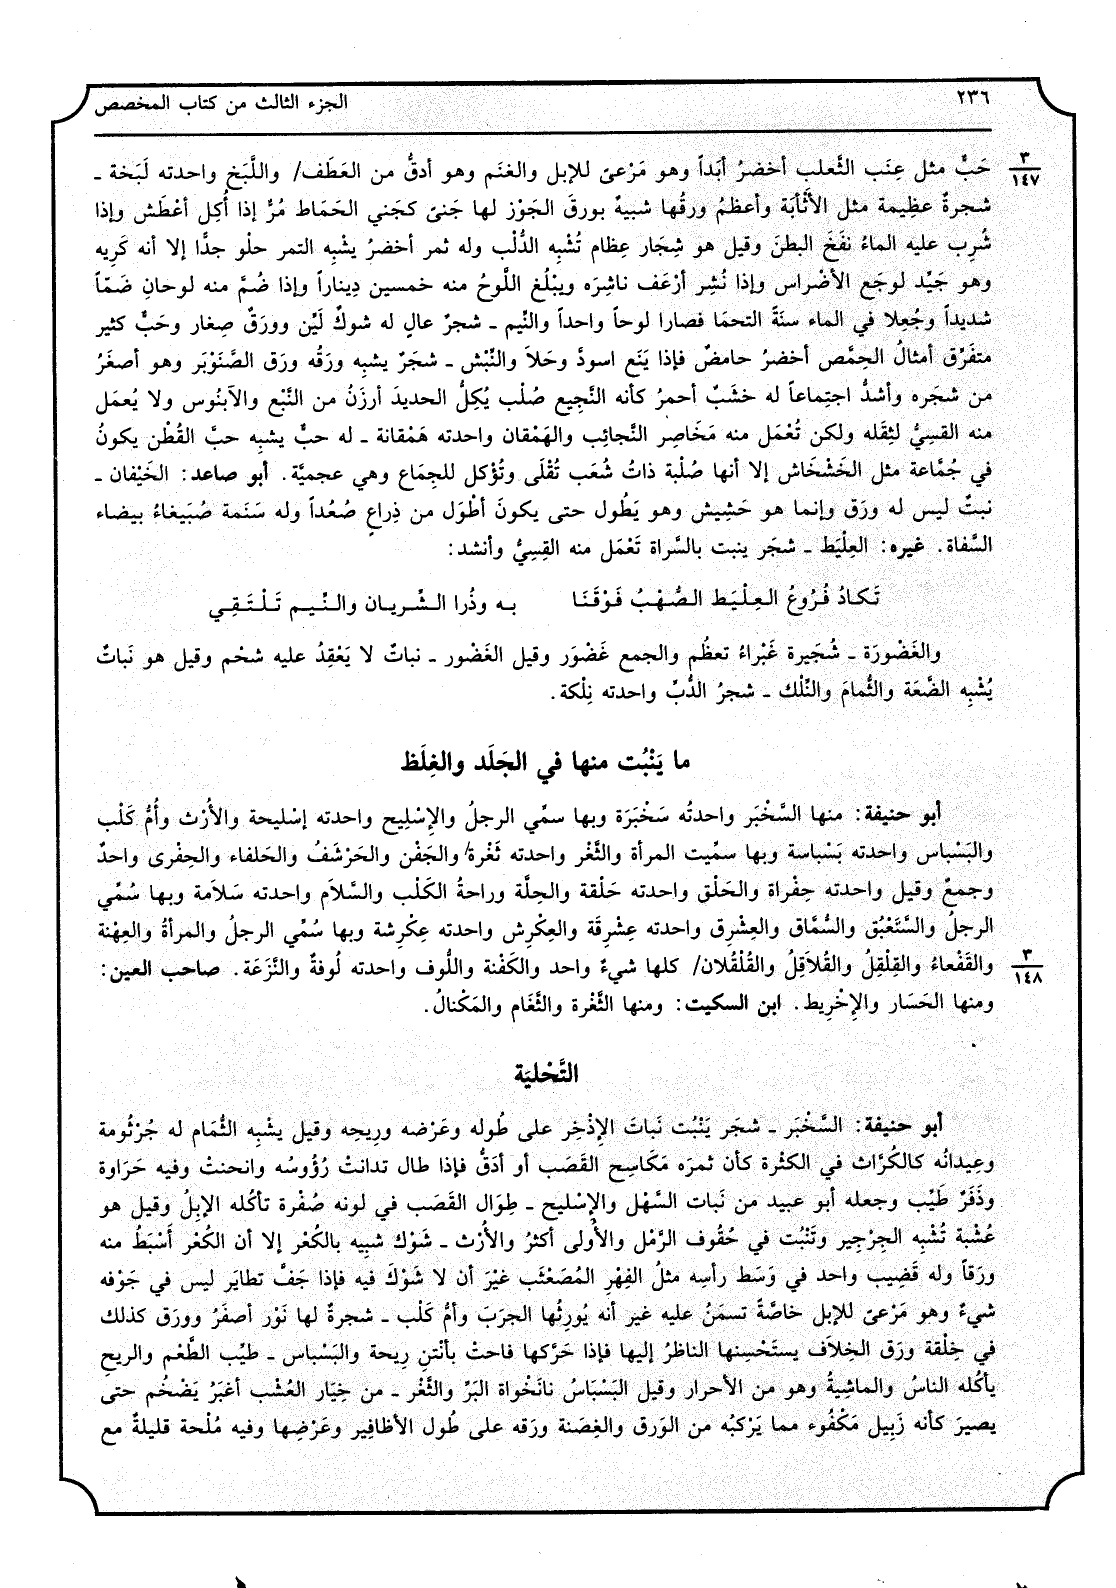 ٢٣٦ الجزء الثالث من كتاب المخصص
حَبٌّ مثل عِنَب الثَّعلب أخضرُ أبَداً وهو مَرْعىً للإبل والغنَم وهو أدقُّ من العَطَف/ واللَّبَخ واحدته لَبَخة ـ
٣
١٤٧
شجرةٌ عظِيمة مثل الأَثْأبَة وأعظمُ ورقُها شبيهٌ بورقَ الجَوْز لها جَنىً كجَني الحَمَاط مُرٌّ إذا أُكِل أعْطَش وإذا
شُرِب عليه الماءُ نفَخَ البطنَ وقيل هو شِجَار عِظام تُشْبِه الدُّلْب وله ثمر أخضرُ يشْبِه التمر حلْو جدًّا إلا أنه كَرِيه
وهو جَيِّد لوجَع الأضْراس وإذا نُشِر أرْعَف ناشِرَه ويبْلُغ اللَّوحُ منه خمسين دِيناراً وإذا ضُمَّ منه لوحانِ ضَمّاً
شديداً وجُعِلا في الماء سنَةً التحمَا فصارا لوحاً واحداً والنِّيم ـ شجرٌ عالٍ له شوكٌ لَيِّن وورَقٌ صِغار وحَبٌّ كثير
متفَرِّق أمثالُ الحِمَّص أخضرُ حامضٌ فإذا يَنَع اسودَّ وحَلاَ والنِّبْش ـ شجَرٌ يشبِه ورَقُه ورَق الصَّنَوْبَر وهو أصغَرُ
من شجَره وأشدُّ اجتِماعاً له خشَبٌ أحمرُ كأنه النَّجِيع صُلْب يُكِلُّ الحديدَ أرزَنُ من النَّبْع والآبنُوس ولا يُعمَل
منه القسِيُّ لثِقَله ولكن تُعْمَل منه مَخَاصِر النَّجائِب والهَمْقان واحدته هَمْقانة ـ له حبٌّ يشبِه حبَّ القُطْن يكونُ
في جُمَّاعة مثل الخَشْخاش إلا أنها صُلْبة ذاتُ شُعَب تُقْلَى وتُؤْكل للجِماع وهي عجميَّة. أبو صاعد: الخَيْفان ـ
نبتٌ ليس له ورَق وإنما هو حَشِيش وهو يَطُول حتى يكونَ أطْوَل من ذِراعٍ صُعُداً وله سَنَمة صُبَيغاءُ بيضاء
السَّفاة. غيره: العِلْيَط ـ شجَر ينبت بالسَّراة تَعْمَل منه القِسِيُّ وأنشد:
تَكادُ فُرُوعُ العِلْيَط الصُّهْبُ فَوْقَنَا به وذُرا الشِّريان والنِّيم تَلْتَقِي
والغَضْورَة ـ شُجَيرة غَبْراءُ تعظُم والجمع غَضْوَر وقيل الغَضْور ـ نباتٌ لا يَعْقِدُ عليه شحْم وقيل هو نَباتٌ
يُشْبِه الضَّعَة والثُّمامَ والنِّلْك ـ شجرُ الدُّبِّ واحدته نِلْكة.
ما يَنْبُت منها في الجَلَد والغِلَظ
أبو حنيفة: منها السَّخْبَر واحدتُه سَخْبَرَة وبها سمِّي الرجلُ والإِسْلِيح واحدته إسْليحة والأُرْث وأُمُّ كَلْب
والبَسْباس واحدته بَسْباسة وبها سمِّيت المرأة والثَّغْر واحدته ثَغْرة والجَفْن والحَرْشَفُ والحَلفاء والحِفْرى واحدٌ
وجمعٌ وقيل واحدته حِفْراة والحَلْق واحدته حَلْقة والحِلَّة وراحةُ الكَلْب والسَّلاَم واحدته سَلاَمة وبها سُمِّي
الرجلُ والسَّنَعْبُق والسُّمَّاق والعِشْرِق واحدته عِشْرِقَة والعِكْرِش واحدته عِكْرِشة وبها سُمِّي الرجلُ والمرأةُ والعِهْنة
والقَفْعاءُ والقِلْقِلُ والقُلاَقِلُ والقُلْقُلان/ كلها شيءٌ واحد والكَفْنة واللُّوف واحدته لُوفةٌ والنَّزَعَة. صاحب العين:
٣
١٤٨
ومنها الحَسَار والإِخْرِيط. ابن السكيت: ومنها الثَّغْرة والثَّغَام والمَكْنالُ.
التَّحْليَة
أبو حنيفة: السَّخْبَر ـ شجَر يَنْبُت نَباتَ الإِذْخِر على طُوله وعَرْضه ورِيحِه وقيل يشْبِه الثُّمَام له جُرْثُومة
وعِيدانُه كالكُرَّاث في الكثْرة كأن ثمرَه مَكَاسِح القَصَب أو أدَقُّ فإذا طال تدانتْ رُؤُوسُه وانحنتْ وفيه حَرَاوة
وذَفَرٌ طَيِّب وجعله أبو عبيد من نَبات السَّهْل والإِسْليح ـ طِوَال القَصَب في لونه صُفْرة تأكُله الإبِلُ وقيل هو
عُشْبة تُشْبِه الجِرْجِير وتَنْبُت في حُقُوف الرَّمْل والأُولى أكثرُ والأُرْث ـ شَوْك شبِيه بالكَعْر إلا أن الكَعْر أسْبَطُ منه
ورَقاً وله قَضِيب واحد في وَسَط رأسِه مثلُ الفِهْرِ المُصَعْنَب غيْرَ أن لا شَوْكَ فيه فإذا جَفَّ تطايَر ليس في جَوْفه
شيءٌ وهو مَرْعىً للإبل خاصَّةً تسمَنُ عليه غير أنه يُورِثُها الجرَبَ وأمُّ كَلْب ـ شجرةٌ لها نَوْر أصفَرُ وورَق كذلك
في خِلْقة ورَق الخِلاَف يستَحْسِنها الناظرُ إليها فإذا حَرَّكها فاحتْ بأنْتنِ رِيحة والبَسْباس ـ طيِّب الطَّعْم والريح
يأكُله الناسُ والماشِيةُ وهو من الأحرار وقيل البَسْبَاسُ نانَخْواة البَرِّ والثَّغْر ـ من خِيَار العُشْب أغبَرُ يَضْخُم حتى
يصيرَ كأنه زَبِيل مَكْفُوء مما يَرْكبُه من الوَرق والغِصَنة ورَقه على طُول الأظافِير وعَرْضِها وفيه مُلْحة قليلةٌ مع